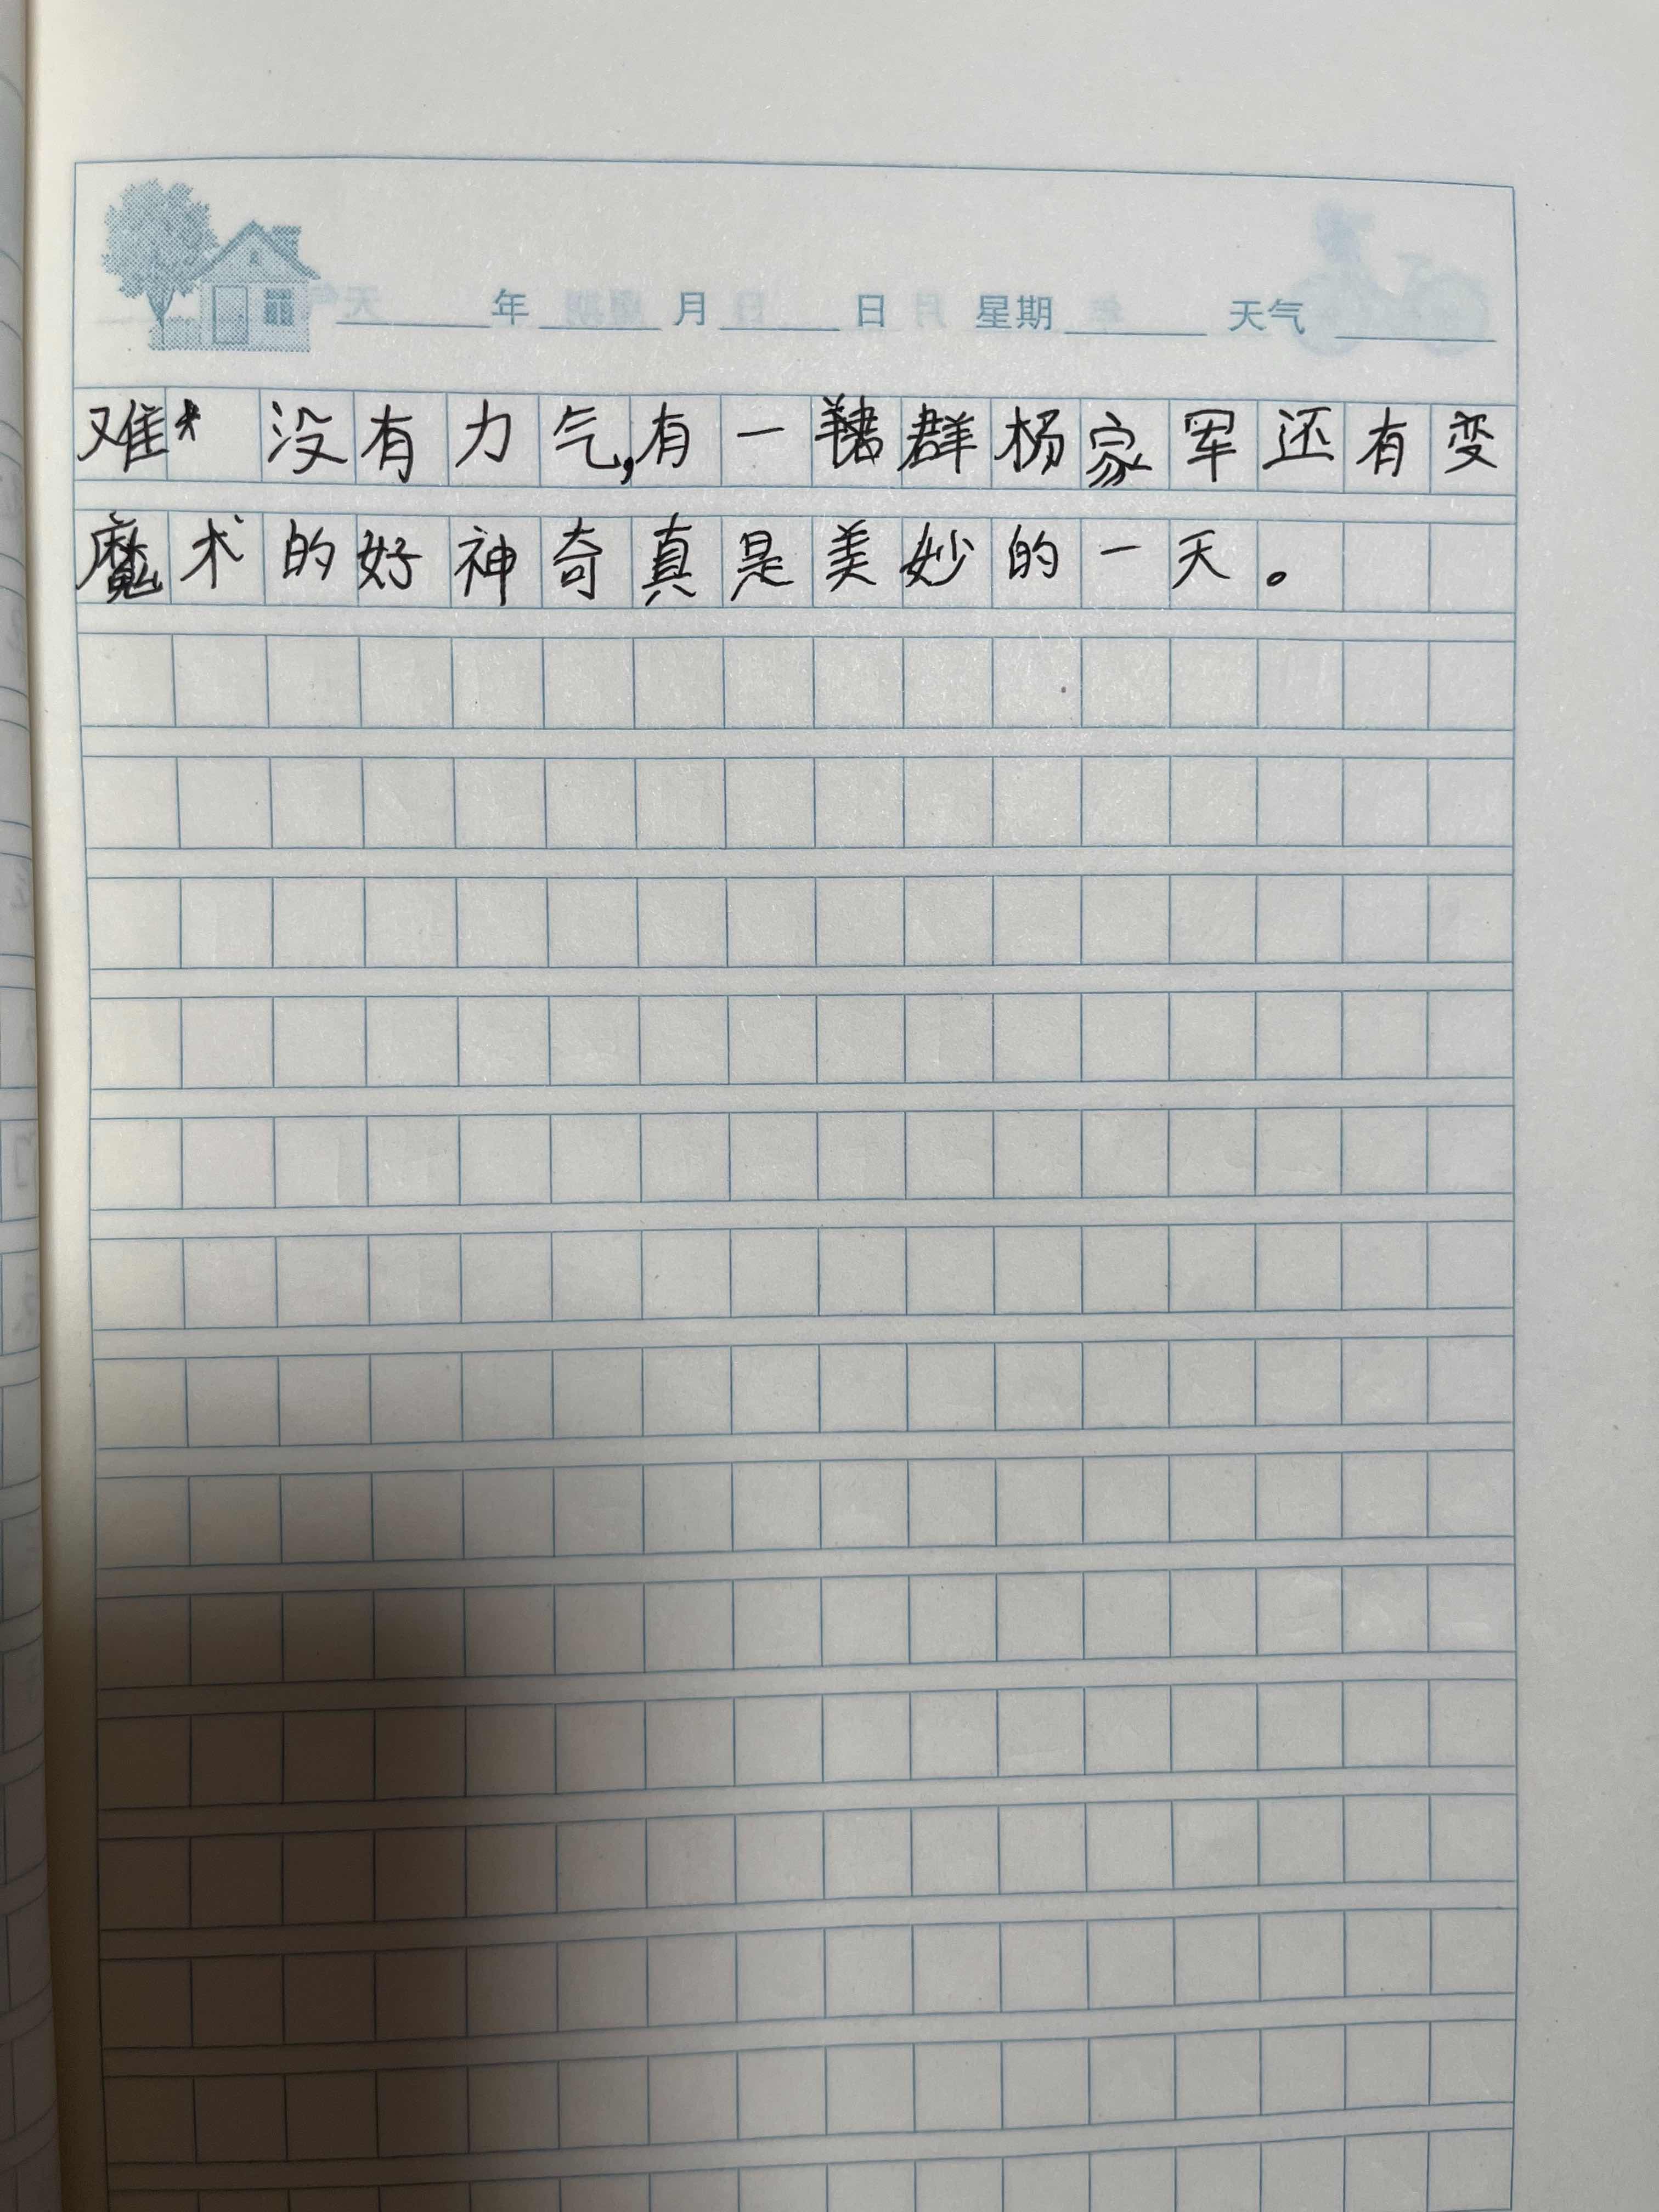 年 月 日 星期 天气
难 没有力气,有一群杨家军还有变
魔术的好神奇真是美妙的一天。